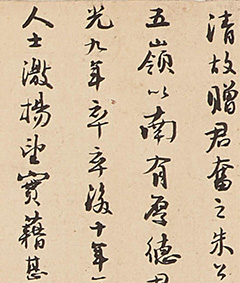 清故贈君奮之朱公
五嶺以南有厚德君
光九年卒卒後十年
人士激揚望實藉甚